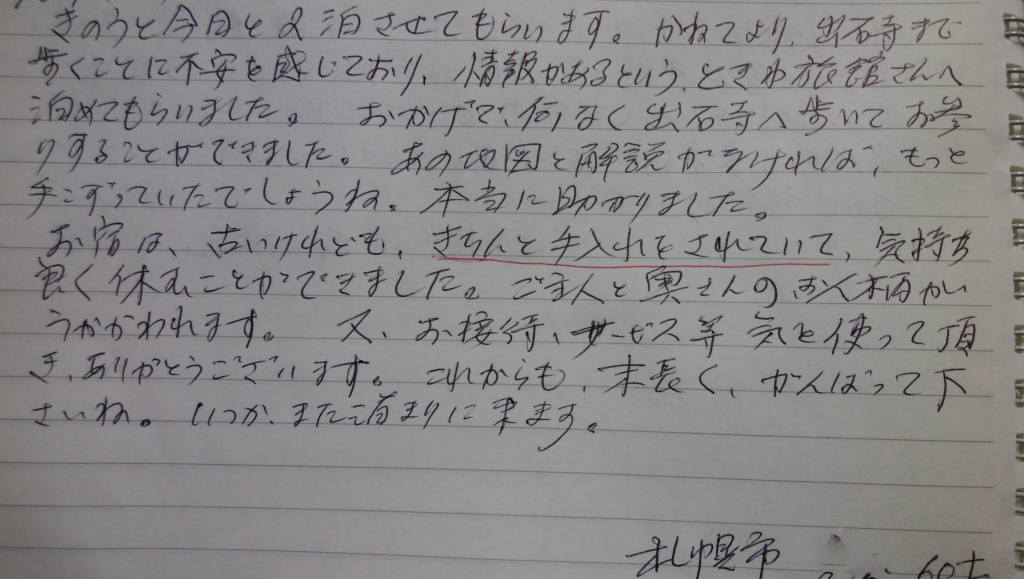 きのうと今日と2泊させてもらいます。かねてより、出石寺まで
歩くことに不安を感じており、情報があるという、ときわ旅館さんへ
泊めてもらいました。おかげで、何なく出石寺へ歩いてお参
りすることができました。あの地図と解説がなければ、もっと
手こずっていたでしょうね。本当に助かりました。
お宿は、古いけれども、きちんと手入れをされていて、気持ち
良く休むことができました。ご主人と奥さんのお人柄が
うかがわれます。又、お接待、サービス等気を使って頂
き、ありがとうございます。これからも、末長く、がんばって下
さいね。いつか、また泊まりに来ます。
札幌市
60才